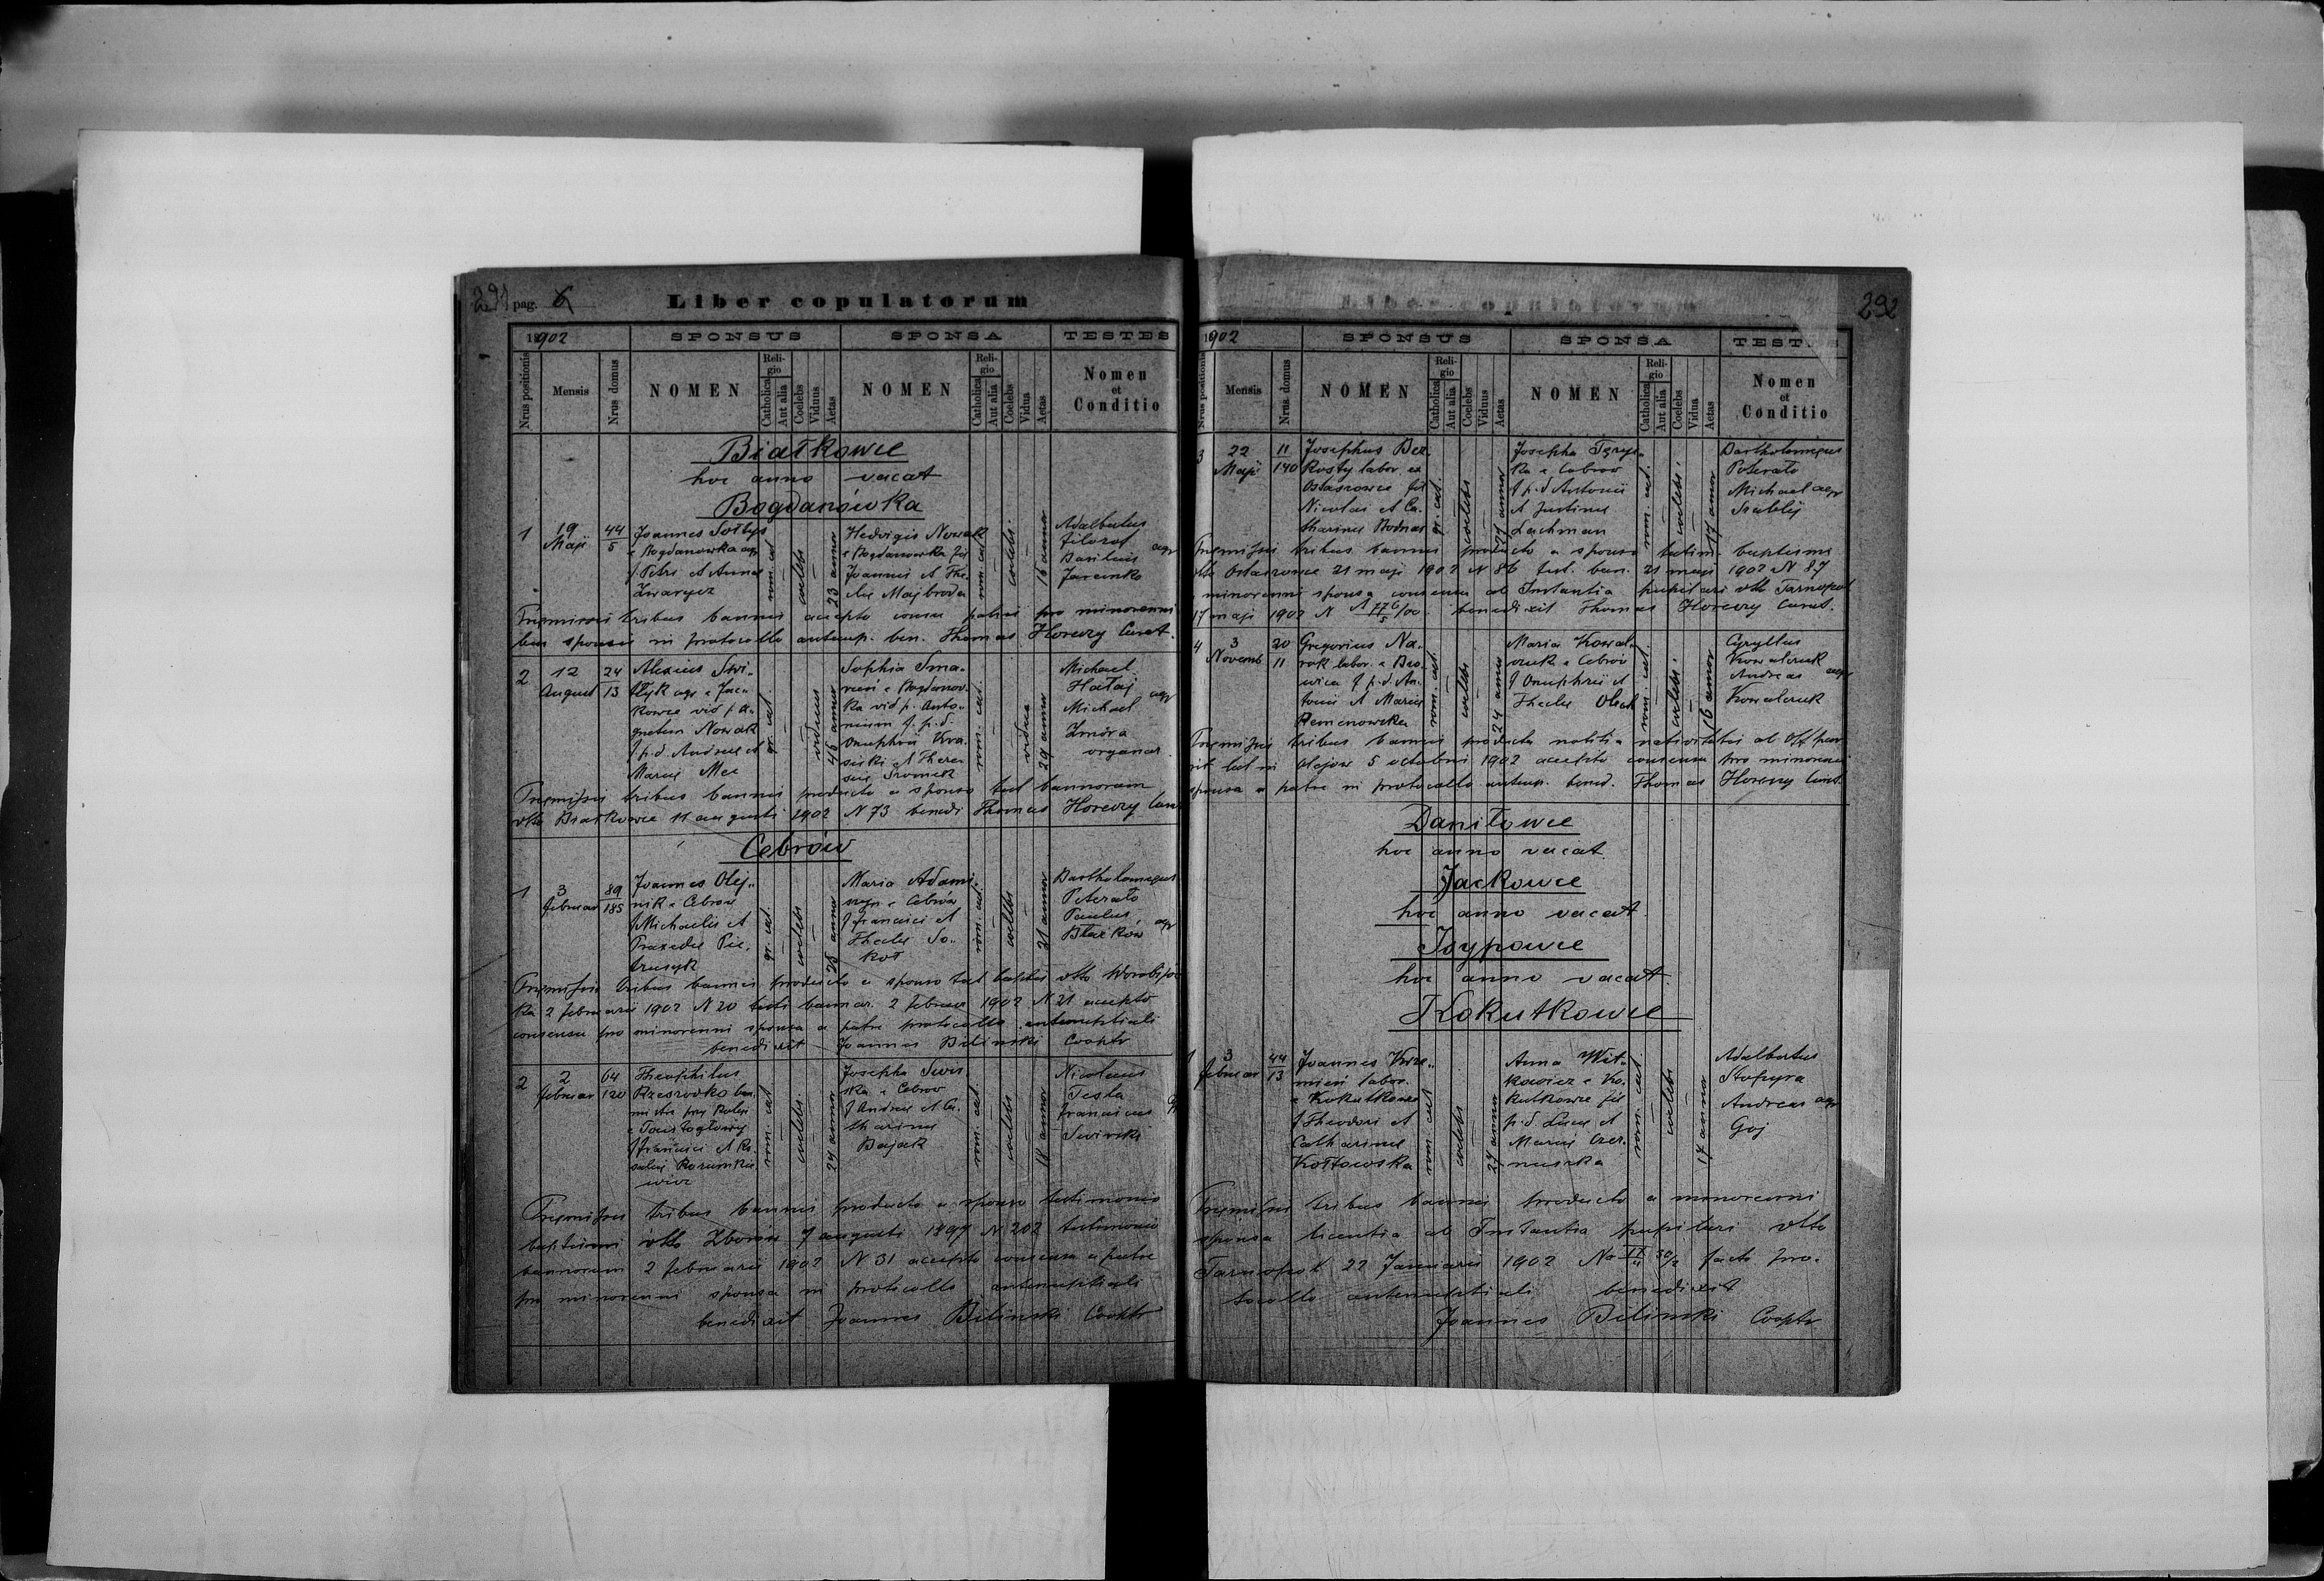 291 pag. 6
Liber copulatorum
1902
SPONSUS
SPONSA
TESTES
Nrus positionis
Mensis
Nrus domus
NOMEN
Religio
Catholica
Aut alia
Coelebs
Viduus
Aetas
NOMEN
Religio
Catholica
Aut alia
Coelebs
Vidua
Aetas
Nomen
et
Conditio
Białkowce
hoc anno vacat
Bogdanówka
1
19
Maji
44
5
Joannes Sołtys
e Bogdanowka agr
f. Petri et Annae
Zwarycz
rom. cat
coelebs
23 annor
Hedvigis Nowak
e Bogdanowka fil
Joannis et The-
clae Majbroda
rom. cat
coelebs
16 annor
Adalbertus
Filozof
Basilius agr
Jaremko
Praemissis tribus bannis accepto consensu patris pro minorenni
bus sponsis in protocollo antenup. ben. Thomas Horeczy Curat.
2
12
August
24
13
Alexius Swi-
stłyk agr e Jac-
kowce vid p. A-
gnetem Nowak
f. p. d. Andreae et
Mariae Mec
gr. cat
viduus
45 annor
Sophia Sma-
e Bogdanow-
ka vid p. Anto-
nium f. p. d.
Onuphrii Kra-
sicki et There-
siae Sromek
rom. cat.
vidua
29 annor
Michael
Hałaj agr
Michael
Zmóra
organar
Praemissis tribus bannis producto a sponso test bannorum
dtto Białkowce 11 augusti 1902 N 73 benedi Thomas Horeczy Curat
Cebrów
1
3
februar
89
185
Joannes Olej-
nik e Cebrow
f Michaelis et
Praxedis Pie-
truszyk
gr. cat.
coelebs
25 annor
Maria Adam-
czyn e Cebrów
f Francisci et
Theclae So-
koł
rom. cat.
coelebs
21 annor
Bartholomaeus
Poterało
Paulus agr
Błazkow
Praemissis tribus bannis producto a sponso test baptis dtto Worobijow
ka 2 februarii 1902 N 20 testi bannor. 2 februar 1902 N 21 accepto
consensu pro minorenni sponsa a patre protocollo antenuptiali
benedixit Joannes Bilinski Cooptr
2
2
februar
64
120
Theophilus
Rzeszodko ban-
mistrz przy kolei
e Toustogłowy
f Francisci et Ro-
saliae Rozumkie-
wicz
rom. cat
coelebs.
29 annor
Josepha Swis-
ka e Cebrow
f Andreae et Ca-
tharinae
Bajak
rom. cat
coelebs
18 annor
Nicolaus
Testa
Franciscus
Swirski
Praemissis tribus bannis producto a sponso testimonio
baptismi dtto Zborów 7 augusti 1897 N 202 testimonio
bannorum 2 februarii 1902 N 31 accepto consensu a patre
pro minorenni sponsa in protocollo antenuptiali
benedixit Joannes Bilinski Cooptr
292
1902
SPONSUS
SPONSA
TEST
Nrus positionis
Mensis
Nrus domus
NOMEN
Religio
Catholica
Aut alia
Coelebs
Viduus
Aetas
NOMEN
Religio
Catholica
Aut alia
Coelebs
Vidua
Aetas
Nomen
et
Conditio
3
22
Maji
11
140
Josephus Bez-
kosty labor ex
Ostaszowce fil
Nicolai et Ca-
tharinae Bodnar
gr. cat
coelebs
27 annor
Josepha
ka e Cebrow
f p. d Antonii
et Justinae
Lachman
rom. cat.
coelebs.
17 annor
Bartholomaeus
Poterało
Michael agr
Praemissis tribus bannis producto a sponso testim. baptismi
dtto Ostaszowce 21 maji 1902 N 86 test. ban. 21 maji 1902 N 87
minorenni sponsa consensu ab Instantia pupilari dtto Tarnopol
17 maji 1902 N benedixit Thomas Horeczy Curat.
4
3
Novemb
20
11
Gregorius Na-
rok labor. e Bzo-
wica f. p. d. An-
tonii et Mariae
Remenowska
rom. cat.
coelebs
24 annor
Maria Kowal-
czuk e Cebrów
f Onuphrii et
Theclae Olech
rom. cat.
coelebs.
16 annor
Cyryllus
Kowalczuk
Andreas agr
Kowalczuk
Praemissis tribus bannis producta notitia nativitatis ab Off par
rit lat in Olejow 5 octobris 1902 accepto consensu pro minorenni
sponsa a patre in protocollo antenup. bened. Thomas Horeczy Curat.
Daniłowce
hoc anno vacat.
Jackowce
hoc anno vacat.
Isypowce
hoc anno vacat.
Kokutkowce
1
3
februar
44
13
Joannes Krze-
mień labor.
e Kokutkowce
f Theodori et
Catharinae
Kotłowska
rom. cat
coelebs
27 annor
Anna Wit-
kowicz e Ko-
kutkowce fil
p. d. Lucae et
Mariae Czer-
nuszka
rom. cat.
coelebs
17 annor
Adalbertus
Stopyra
Andreas agr
Goj
Praemissis tribus bannis producto a minorenni
sponsa licentia ab Instantia pupilari dtto
Tarnopol 22 Januarii 1902 No facto pro-
tocollo antenuptiali benedixit
Joannes Bilinski Cooptr